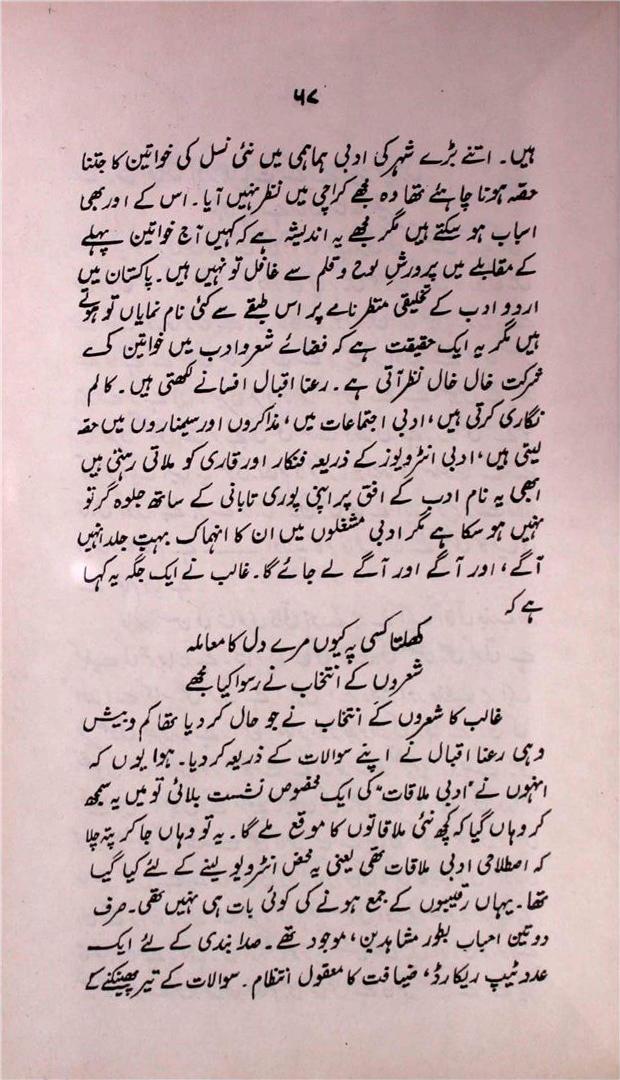 ۶۷
ہیں۔ اتنے بڑے شہر کی ادبی ہماہمی میں نئی نسل کی خواتین کا جتنا
حصہ ہونا چاہئے تھا وہ مجھے کراچی میں نظر نہیں آیا۔ اس کے اور بھی
اسباب ہو سکتے ہیں مگر مجھے یہ اندیشہ ہے کہ کہیں آج خواتین پہلے
کے مقابلے میں پرورشِ لوح و قلم سے غافل تو نہیں ہیں۔ پاکستان میں
اردو ادب کے تخلیقی منظر نامے پر اس طبقے سے کئی نام نمایاں تو ہوتے
ہیں مگر یہ ایک حقیقت ہے کہ فضائے شعر و ادب میں خواتین کے
شرکت خال خال نظر آتی ہے۔ رعنا اقبال افسانے لکھتی ہیں۔ کالم
نگاری کرتی ہیں، ادبی اجتماعات میں، مذاکروں اور سیمناروں میں حصہ
لیتی ہیں، ادبی انٹرویوز کے ذریعہ فنکار اور قاری کو ملاتی رہتی ہیں
ابھی یہ نام ادب کے افق پر اپنی پوری تابانی کے ساتھ جلوہ گر تو
نہیں ہو سکا ہے مگر ادبی مشغلوں میں ان کا انہماک بہت جلد انہیں
آگے، اور آگے اور آگے لے جائے گا۔ غالب نے ایک جگہ یہ کہا
ہے کہ
کھلتا کسی پہ کیوں مرے دل کا معاملہ
شعروں کے انتخاب نے رسوا کیا مجھے
غالب کا شعروں کے انتخاب نے جو حال کر دیا تھا کم و بیش
وہی رعنا اقبال نے اپنے سوالات کے ذریعہ کر دیا۔ ہوا یوں کہ
انہوں نے "ادبی ملاقات" کی ایک مخصوص نشست بلائی تو میں یہ سمجھ
کر وہاں گیا کہ کچھ نئی ملاقاتوں کا موقع ملے گا۔ یہ تو وہاں جا کر پتہ چلا
کہ اصطلاحی ادبی ملاقات تھی یعنی یہ محض انٹرویو لینے کے لئے کیا گیا
تھا۔ یہاں رقیبوں کے جمع ہونے کی کوئی بات ہی نہیں تھی۔ صرف
دو تین احباب بطور مشاہدین، موجود تھے۔ صدا بندی کے لئے ایک
عدد ٹیپ ریکارڈ، ضیافت کا معقول انتظام۔ سوالات کے تیر پھینکنے کے